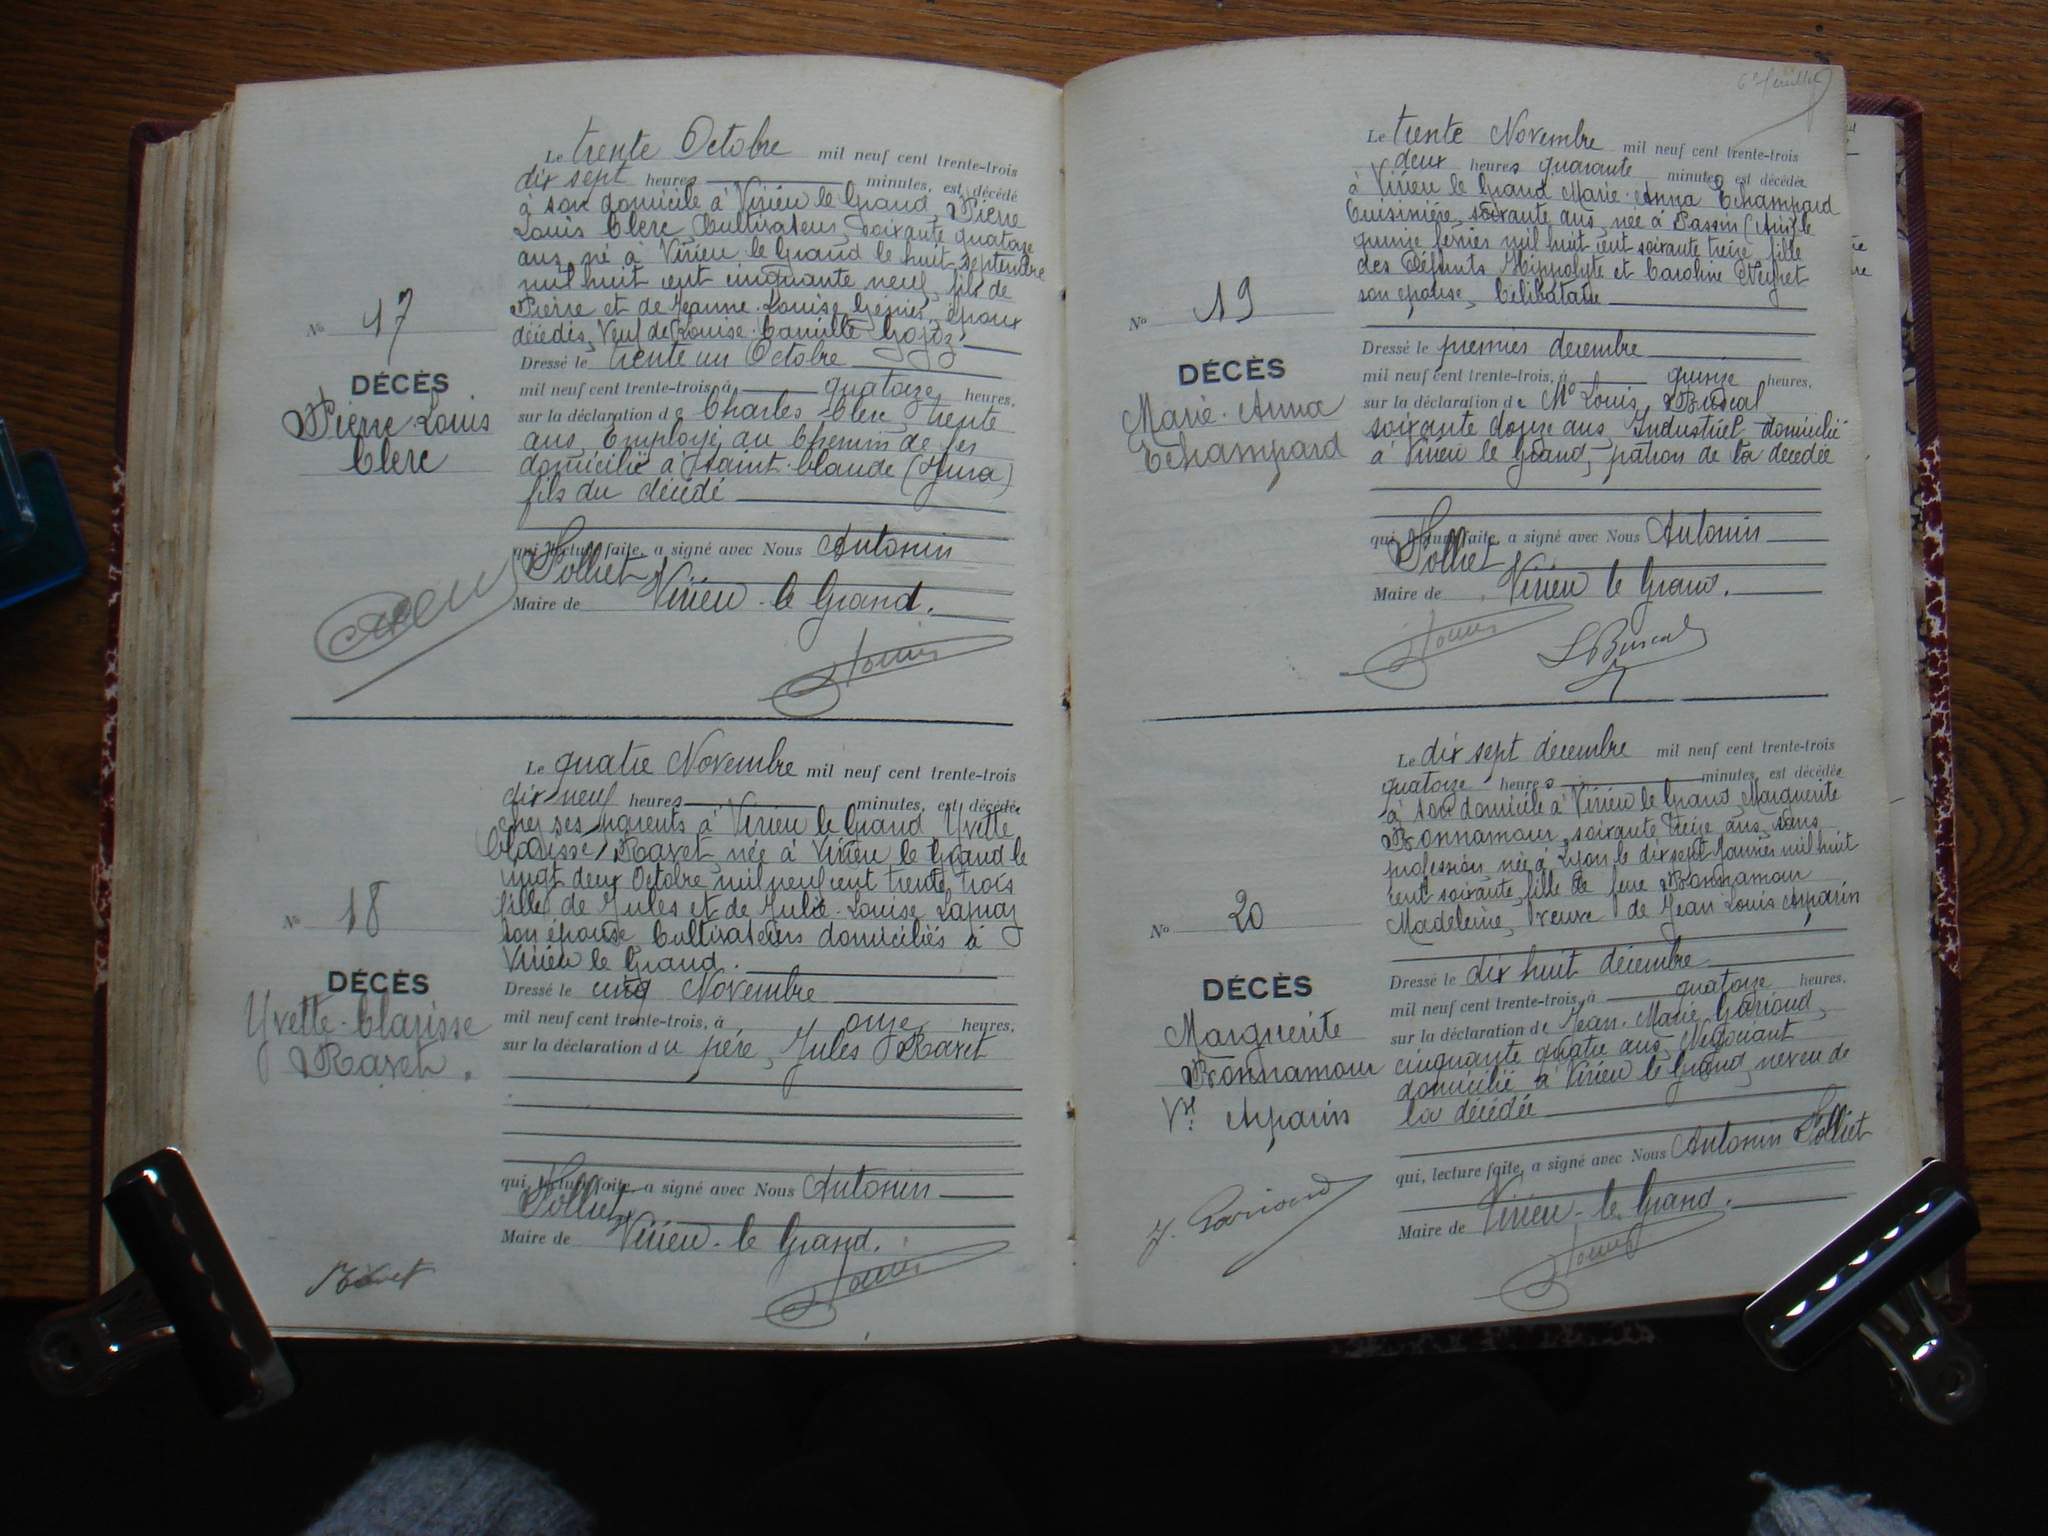 Le trente Octobre mil neuf cent trente-trois
dix sept heures minutes, est décédé
à son domicile à Virieu le Grand, Pierre
Louis Clerc, Cultivateur, soixante quatorze
ans, né à Virieu le Grand le huit septembre
mil huit cent cinquante neuf, fils de
Pierre et de Jeanne-Louise époux
décédés, Veuf de Louise-Camille
Dressé le trente un Octobre
mil neuf cent trente-trois, à quatorze heures,
sur la déclaration de Charles Clerc, trente
ans, Employé au Chemin de fer
domicilié à Saint-Claude (Jura)
fils du décédé
qui, lecture faite, a signé avec Nous Antonin
Solliet
Maire de Virieu-le Grand.
No 17
DÉCÈS
Pierre-Louis
Clerc
Le quatre Novembre mil neuf cent trente-trois
dix neuf heures minutes, est décédée
chez ses parents à Virieu le Grand, Yvette
Clarisse Ravet, née à Virieu le Grand le
vingt deux Octobre mil neuf cent trente trois
fille de Jules et de Julie-Louise
son épouse Cultivateurs domiciliés à
Virieu le Grand.
Dressé le cinq Novembre
mil neuf cent trente-trois, à onze heures,
sur la déclaration du père, Jules Ravet
qui, lecture faite, a signé avec Nous Antonin
Solliet
Maire de Virieu-le Grand.
No 18
DÉCÈS
Yvette-Clarisse
Ravet.
Ravet
6e feuillet
Le trente Novembre mil neuf cent trente-trois
deux heures quarante minutes est décédée
à Virieu le Grand Marie-Anna Echampard
Cuisinière, soixante ans, née à Passin (Ain) le
quinze février mil huit cent soixante treize, fille
des Défunts Hippolyte et Caroline Neyret
son épouse, Célibataire
Dressé le premier decembre
mil neuf cent trente-trois, à quinze heures,
sur la déclaration de Mr Louis Buscal
soixante douze ans, Industriel domicilié
à Virieu le Grand, patron de la décédée
qui, lecture faite, a signé avec Nous Antonin
Solliet
Maire de Virieu le Grand.
L Buscal
No 19
DÉCÈS
Marie-Anna
Echampard
Le dix sept décembre mil neuf cent trente-trois
quatorze heures minutes, est décédée
à son domicile à Virieu le Grand, Marguerite
Bonnamour, soixante treize ans, sans
profession née à Lyon le dix sept Janvier mil huit
cent soixante, fille de feue Bonnamour
Madeleine, veuve de Jean Louis Asparin
Dressé le dix huit décembre
mil neuf cent trente-trois, à quatorze heures,
sur la déclaration de Jean-Marie Garioud,
cinquante quatre ans, Négociant
domicilié à Virieu le Grand, neveu de
la décédée
qui, lecture faite, a signé avec Nous Antonin Solliet
Maire de Virieu-le Grand.
No 20
DÉCÈS
Marguerite
Bonnamour
Ve Asparin
J. Garioud